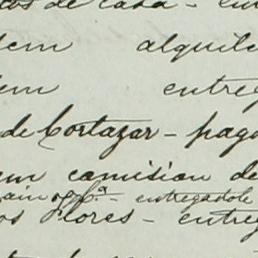 de casa - en
dem alquile
em entreg
de Cortazar - pago
em comision de
entregadole
os Flores - entreg